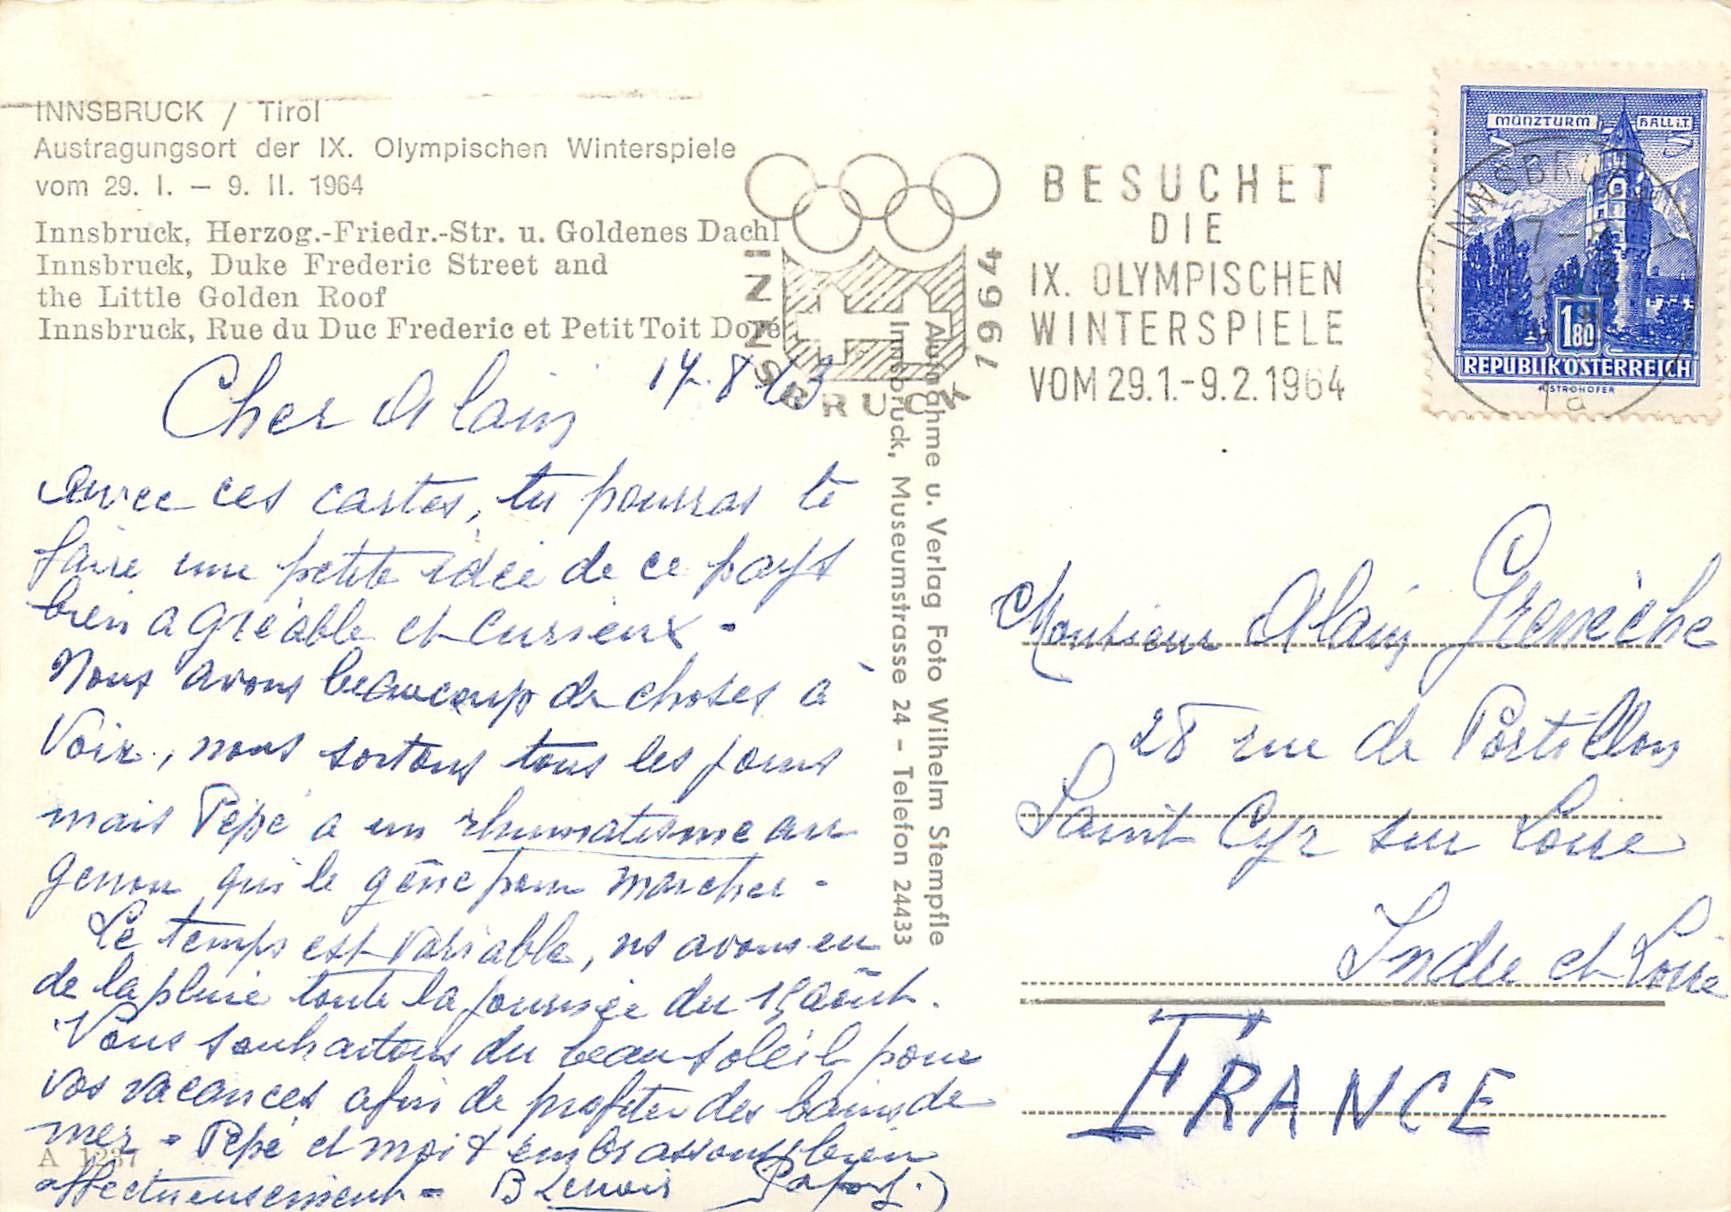 INNSBRUCK / Tirol
Austragungsort der IX. Olympischen Winterspiele
vom 29. I. – 9. II. 1964
Innsbruck, Herzog.-Friedr.-Str. u. Goldenes Dachl
Innsbruck, Duke Frederic Street and
the Little Golden Roof
Innsbruck, Rue du Duc Frederic et Petit Toit Doré
17.8.63
Cher Alain
Avec ces cartes, tu pourras te
faire une petite idée de ce pays
bien agréable et curieux.
Nous avons beaucoup de choses à
voir, nous sortons tous les jours
mais Pépé a un rhumatisme au
genou qui le gêne pour marcher.
Le temps est variable, ns avons eu
de la pluie toute la journée du 15 août.
Vous souhaitons du beau soleil pour
vos vacances afin de profiter des bains de
mer = Pépé et moi t'embrassons bien
affectueusement = B Lenoir
A 1237
INNSBRUCK 1964
BESUCHET
DIE
IX. OLYMPISCHEN
WINTERSPIELE
VOM 29.1.-9.2.1964
Aufnahme u. Verlag Foto Wilhelm Stempfle
Innsbruck, Museumstrasse 24 – Telefon 24433
MÜNZTURM HALL i.T.
INNSBRUCK
1a
1.80
REPUBLIK ÖSTERREICH
A. STROHOFER
Monsieur Alain Grenèche
28 rue de Portillon
Saint Cyr sur Loire
Indre et Loire
FRANCE